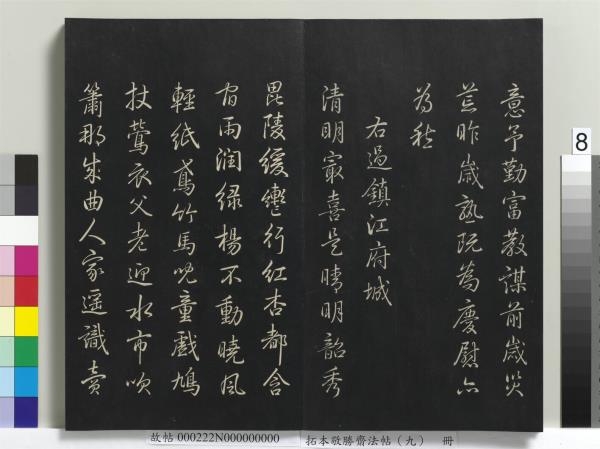 意予勤富教謀前歲災
荒昨歲熟既為慶慰亦
為愁
右過鎮江府城
清明最喜是晴明韶秀
毘陵緩轡行紅杏都含
宿雨潤綠楊不動曉風
輕紙鳶竹馬兒童戲鳩
杖鶯衣父老迎水市吹
簫那成曲人家遥識賣
8
故帖 000222N000000000
拓本敬勝齋法帖（九） 冊